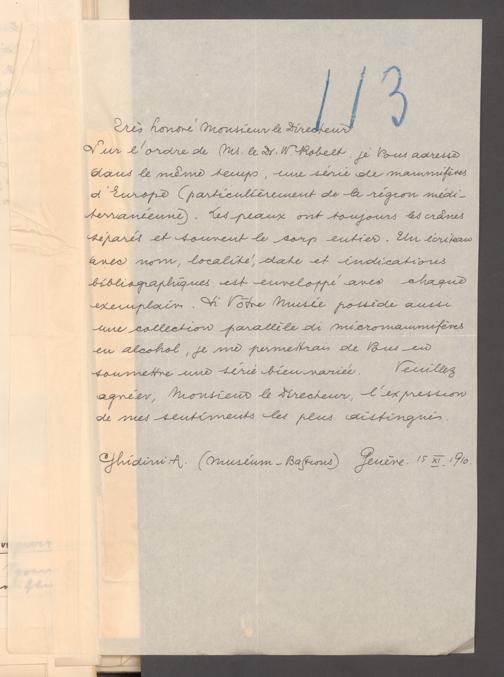 113
Très honoré Monsieur le Directeur
Sur l'ordre de Ms. le Dr. W Kobelt je Vous adresse
dans le même temps, une série de mammifères
d'Europe (particulièrement de la région médi-
terranéenne). Les peaux ont toujours les crânes
séparés et souvent le corp entier. Un écriteau
avec nom, localité, date et indications
bibliographiques est enveloppé avec chaque
exemplair. Si Vôtre Musée possède aussi
une collection parallèle di micromammifères
en alcohol, je me permettrais de Vous en
soumettre une série bien variée. Veuillez
agréer, Monsieur le Directeur, l'expression
de mes sentiments les plus distingués.
Ghidini A. (Muséum - Bastions) Genève. 15 XI. 1910.